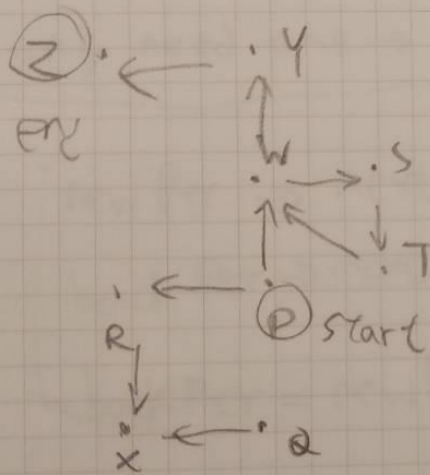 Z Y
end
W S
T
P start
R
X Q